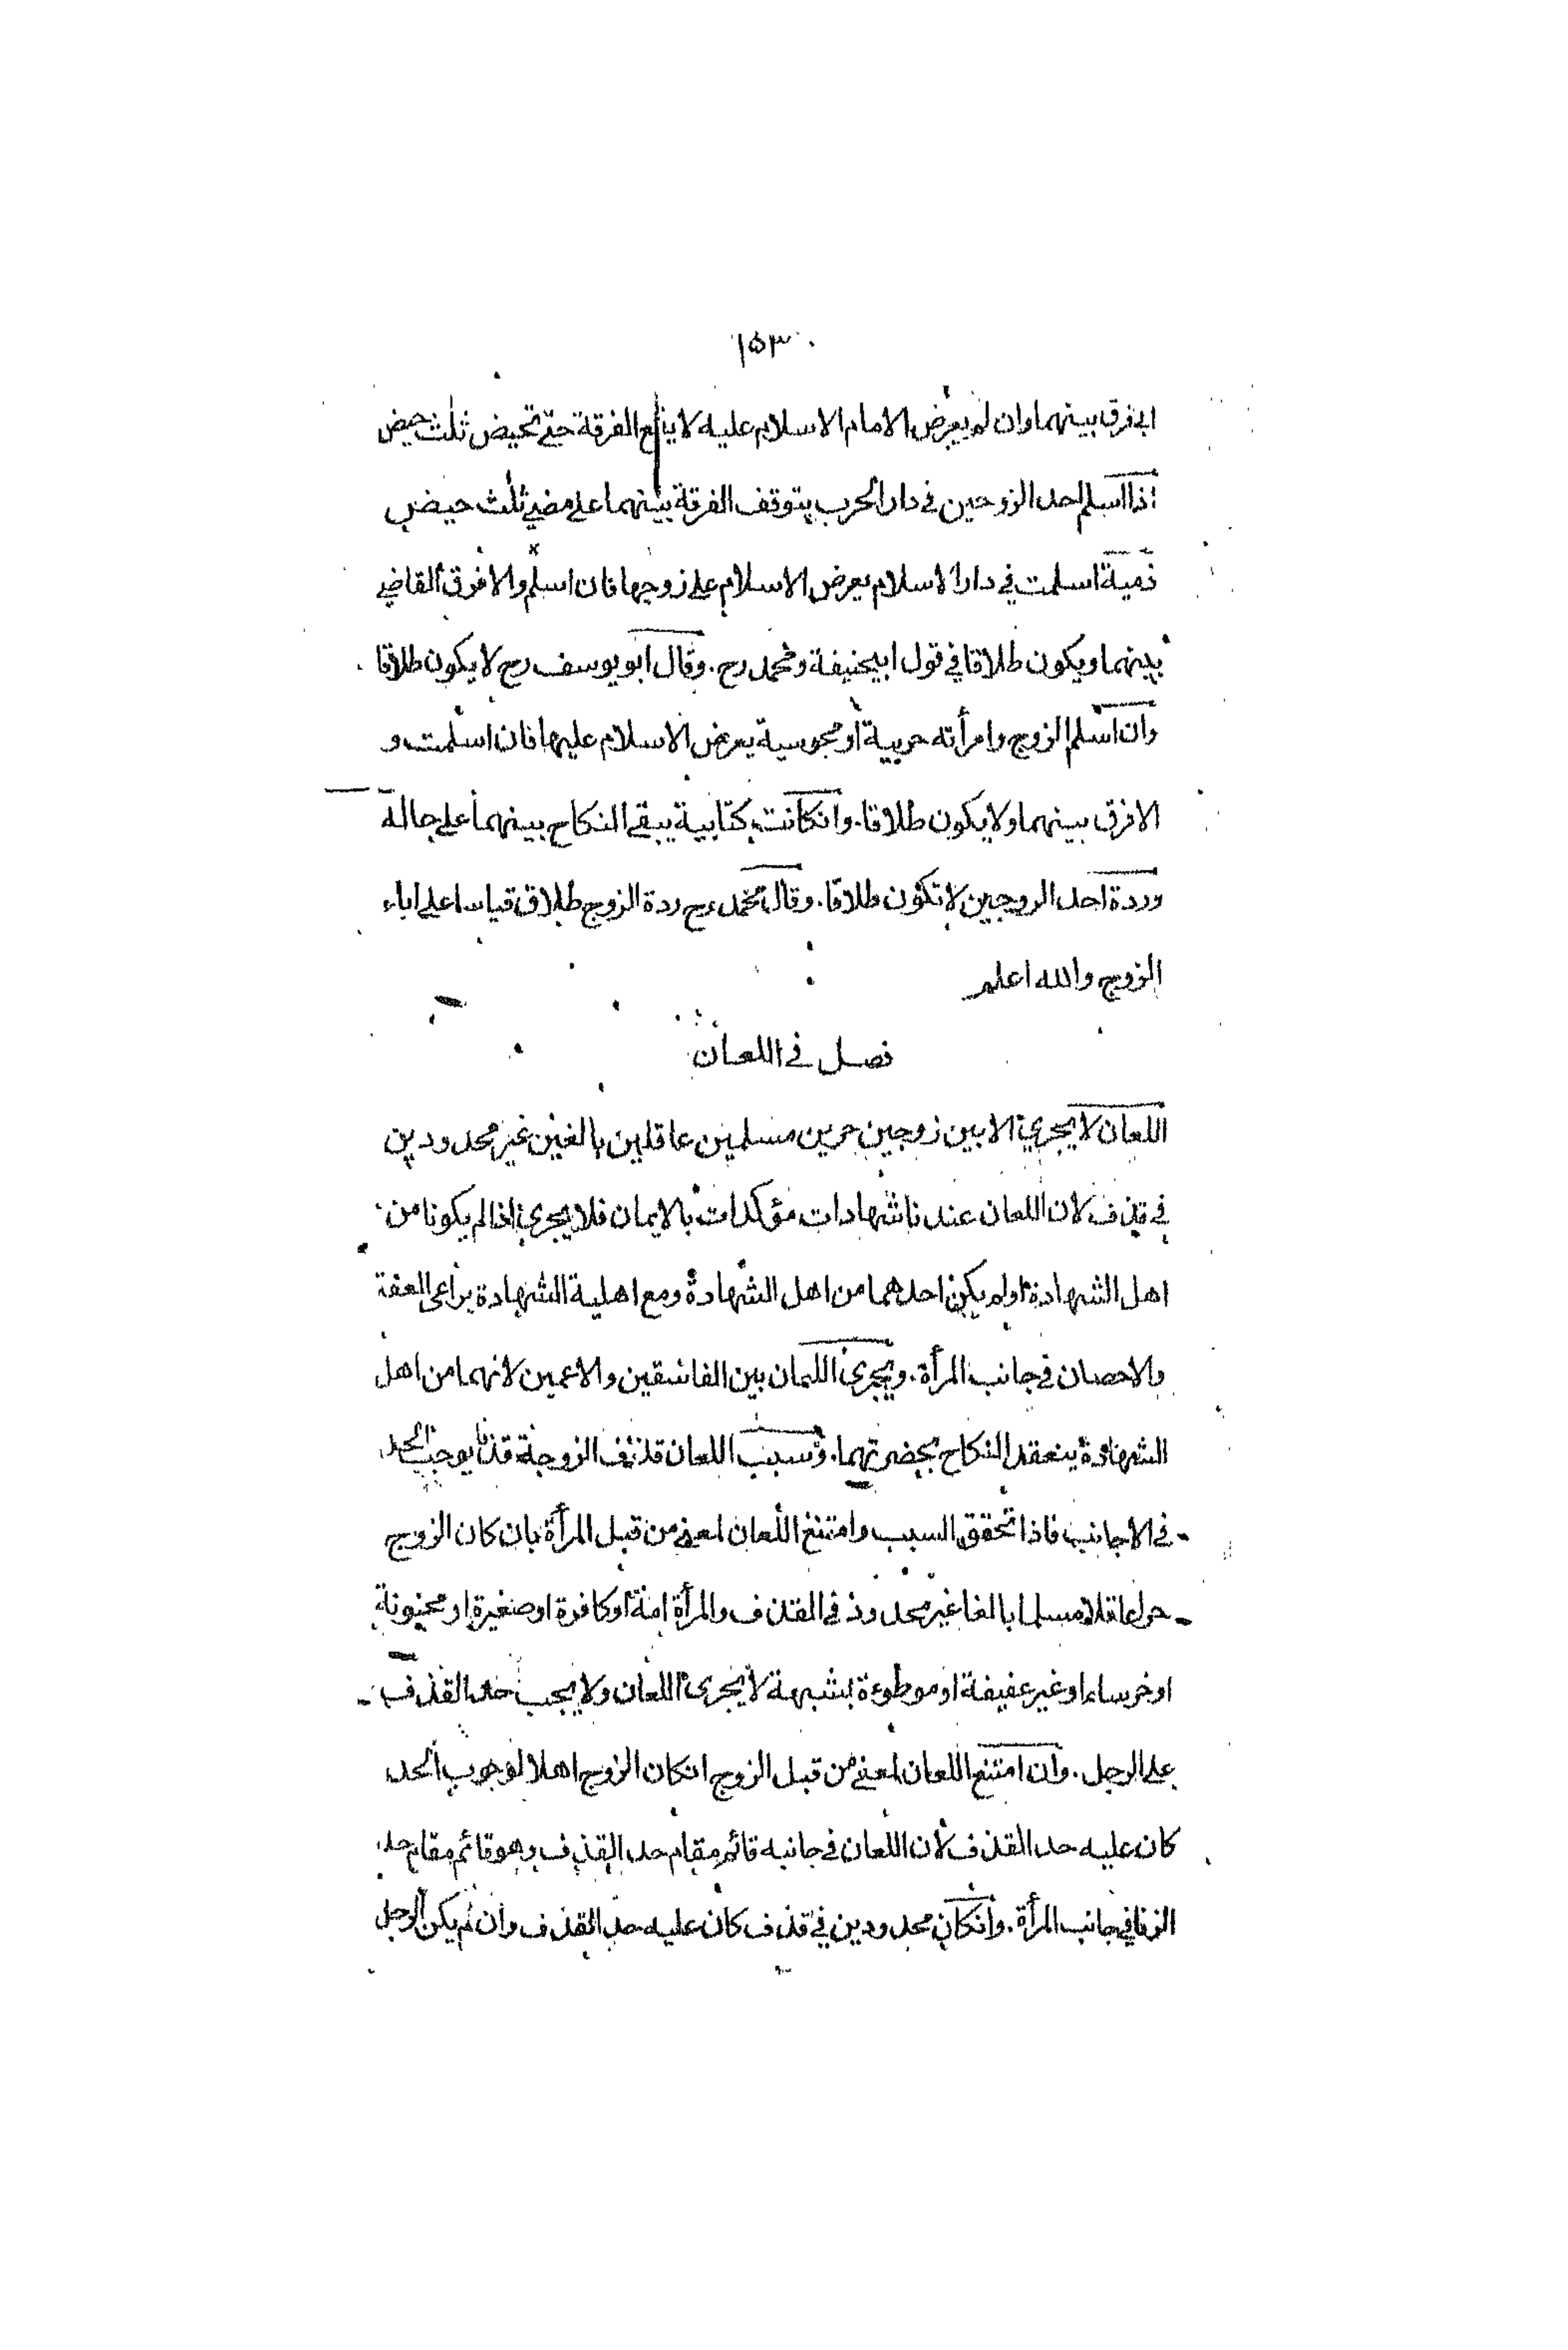 ١٥٣
ابى فرق بينهما وان لم يعرض الامام الاسلام عليه لا يقع الفرقة حتى تحيض ثلث حيض
اذا اسلم احد الزوجين في دار الحرب يتوقف الفرقة بينهما على مضي ثلث حيض
ذمية اسلمت في دار الاسلام يعرض الاسلام على زوجها فان اسلم والا فرق القاضي
بينهما ويكون طلاقا في قول ابيحنيفة ومحمد رح . وقال ابو يوسف رح لا يكون طلاقا
وان اسلم الزوج وامرأته حربية او مجوسية يعرض الاسلام عليها فان اسلمت و
الا فرق بينهما ولا يكون طلاقا . وانكانت كتابية يبقى النكاح بينهما على حاله
وردة احد الزوجين لا تكون طلاقا . وقال محمد رح ردة الزوج طلاق قياسا على اباء
الزوج والله اعلم
فصل في اللعان
اللعان لا يجري الا بين زوجين حرين مسلمين عاقلين بالغين غير محدودين
في قذف لان اللعان عندنا شهادات مؤكدات بالايمان فلا يجري اذا لم يكونا من
اهل الشهادة او لم يكن احدهما من اهل الشهادة ومع اهلية الشهادة يراعى العفة
والاحصان في جانب المرأة . ويجرى اللعان بين الفاسقين والاعميين لانهما من اهل
الشهادة ينعقد النكاح بحضرتهما . وسبب اللعان قذف الزوجة قذفا يوجب الحد
في الاجانب فاذا تحقق السبب وامتنع اللعان لمعنى من قبل المرأة بان كان الزوج
حرا عاقلا مسلما بالغا غير محدود في القذف والمرأة امة او كافرة او صغيرة او مجنونة
او خرساء او غير عفيفة او موطوءة بشبهة لا يجرى اللعان ولا يجب حد القذف
على الرجل . وان امتنع اللعان لمعنى من قبل الزوج انكان الزوج اهلا لوجوب الحد
كان عليه حد القذف لان اللعان في جانبه قائم مقام حد القذف وهو قائم مقام حد
الزنا في جانب المرأة . وانكان محدودين في قذف كان عليه حد القذف وان لم يكن الرجل